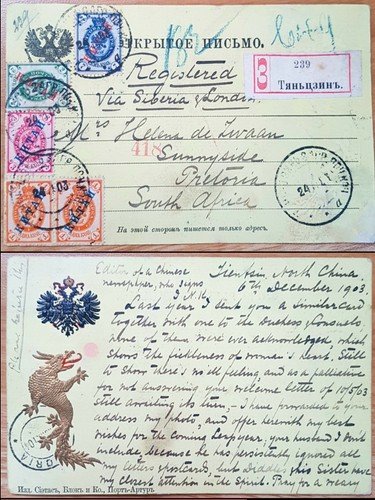 ОТКРЫТОЕ ПИСЬМО.
Registered
Via Siberia & London.
З
239
Тяньцзинъ.
Mrs Helena de Zwaan
418
Sunnyside
Pretoria
South Africa
На этой сторонѣ пишется только адресъ.
КИТАЙ
КИТАЙ
КИТАЙ
Editor of a Chinese
newspaper, who signs
Tientsin, North China
6th December 1903.
Last year I sent you a similar Card
together with one to the Duchess Consuelo
none of them were ever acknowledged, which
shows the fickleness of women's heart. Still
to show there's no ill feeling and as a palliative
for not answering your welcome letter of 10/5/03
still awaiting its turn, I have forwarded to your
address my photo, and offer herewith my best
wishes for the coming leap year, your husband I don't
include, because he has persistently ignored all
my letters & postcards, but
this Sister have
my closest attention in the Spirit. Pray for a weary
PRETORIA
Изд. Сіетасъ, Блокъ и Ко., Портъ-Артуръ.